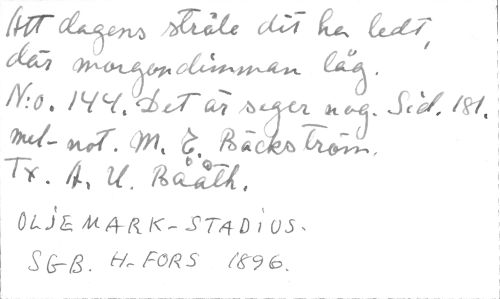 Att dagens stråle dit har ledt,
där morgondimman låg.
N:o. 144. Det är seger nog. Sid. 181.
mel-not. M. E. Bäckström.
Tx. A. U. Bååth.
OLJEMARK-STADIUS.
SGB. H-FORS 1896.